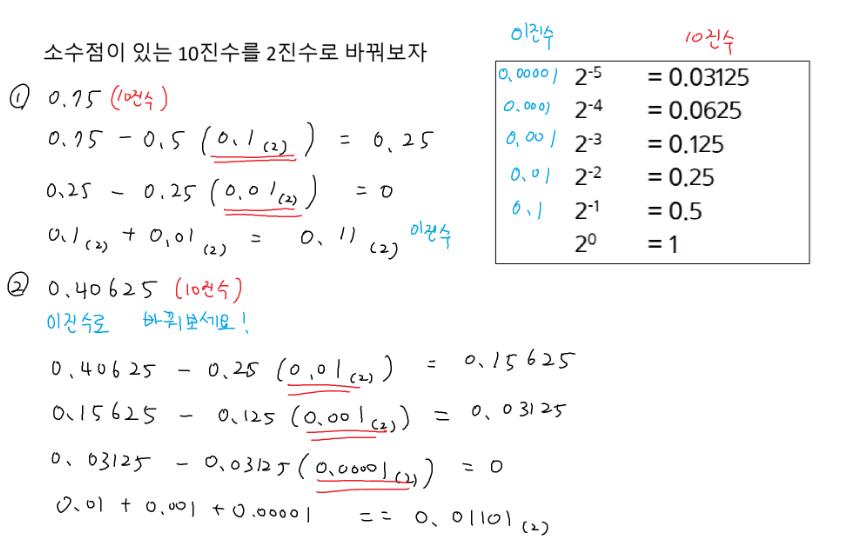 소수점이 있는 10진수를 2진수로 바꿔보자
① 0.75 (10진수)
0.75 - 0.5 (0.1(2)) = 0.25
0.25 - 0.25 (0.01(2)) = 0
0.1(2) + 0.01(2) = 0.11(2) 이진수
② 0.40625 (10진수)
이진수로 바꿔보세요!
0.40625 - 0.25 (0.01(2)) = 0.15625
0.15625 - 0.125 (0.001(2)) = 0.03125
0.03125 - 0.03125 (0.00001(2)) = 0
0.01 + 0.001 + 0.00001 == 0.01101(2)
이진수 10진수
0.00001 2⁻⁵ = 0.03125
0.0001 2⁻⁴ = 0.0625
0.001 2⁻³ = 0.125
0.01 2⁻² = 0.25
0.1 2⁻¹ = 0.5
2⁰ = 1